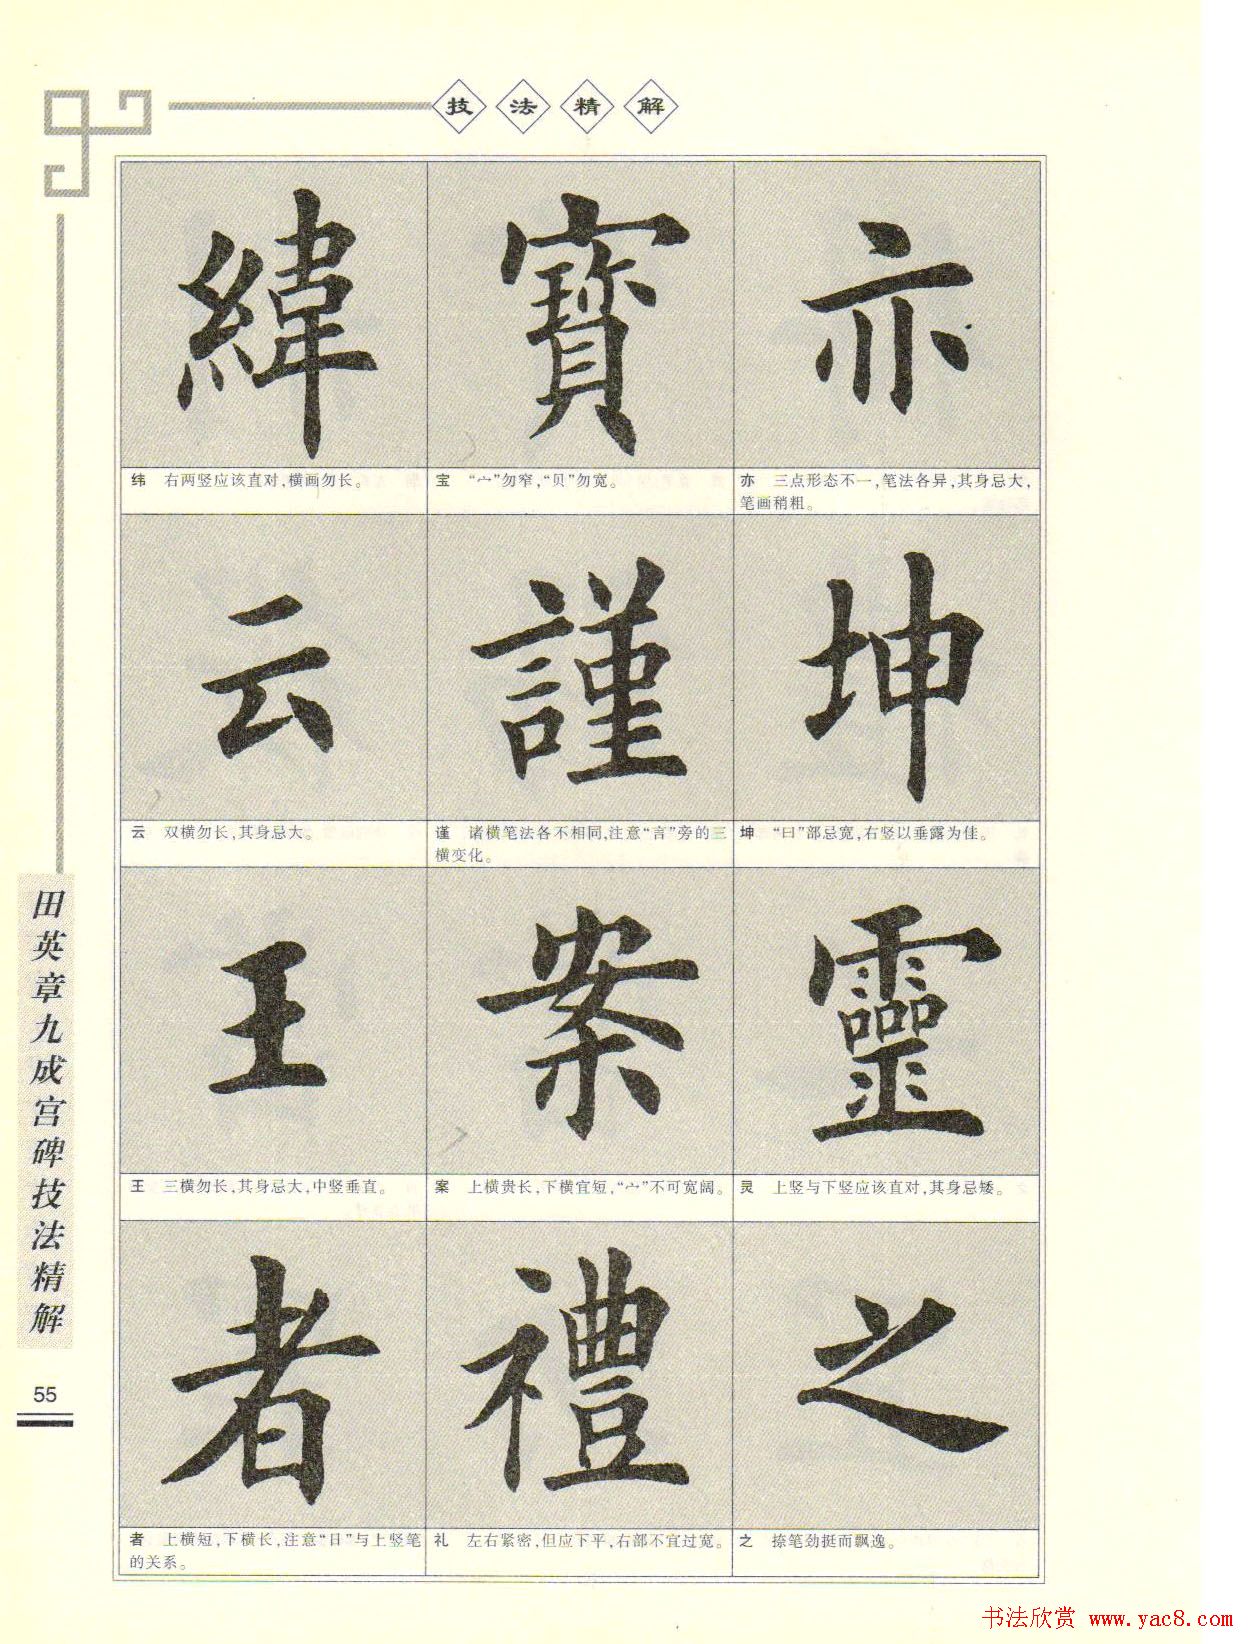 技法精解
緯
寶
亦
纬 右两竖应该直对,横画勿长。
宝 “宀”勿窄,“贝”勿宽。
亦 三点形态不一,笔法各异,其身忌大,
笔画稍粗。
云
謹
坤
云 双横勿长,其身忌大。
谨 诸横笔法各不相同,注意“言”旁的三
横变化。
坤 “曰”部忌宽,右竖以垂露为佳。
王
案
靈
王 三横勿长,其身忌大,中竖垂直。
案 上横贵长,下横宜短,“宀”不可宽阔。
灵 上竖与下竖应该直对,其身忌矮。
者
禮
之
者 上横短,下横长,注意“日”与上竖笔
的关系。
礼 左右紧密,但应下平,右部不宜过宽。
之 捺笔劲挺而飘逸。
田英章九成宫碑技法精解
55
书法欣赏 www.yac8.com